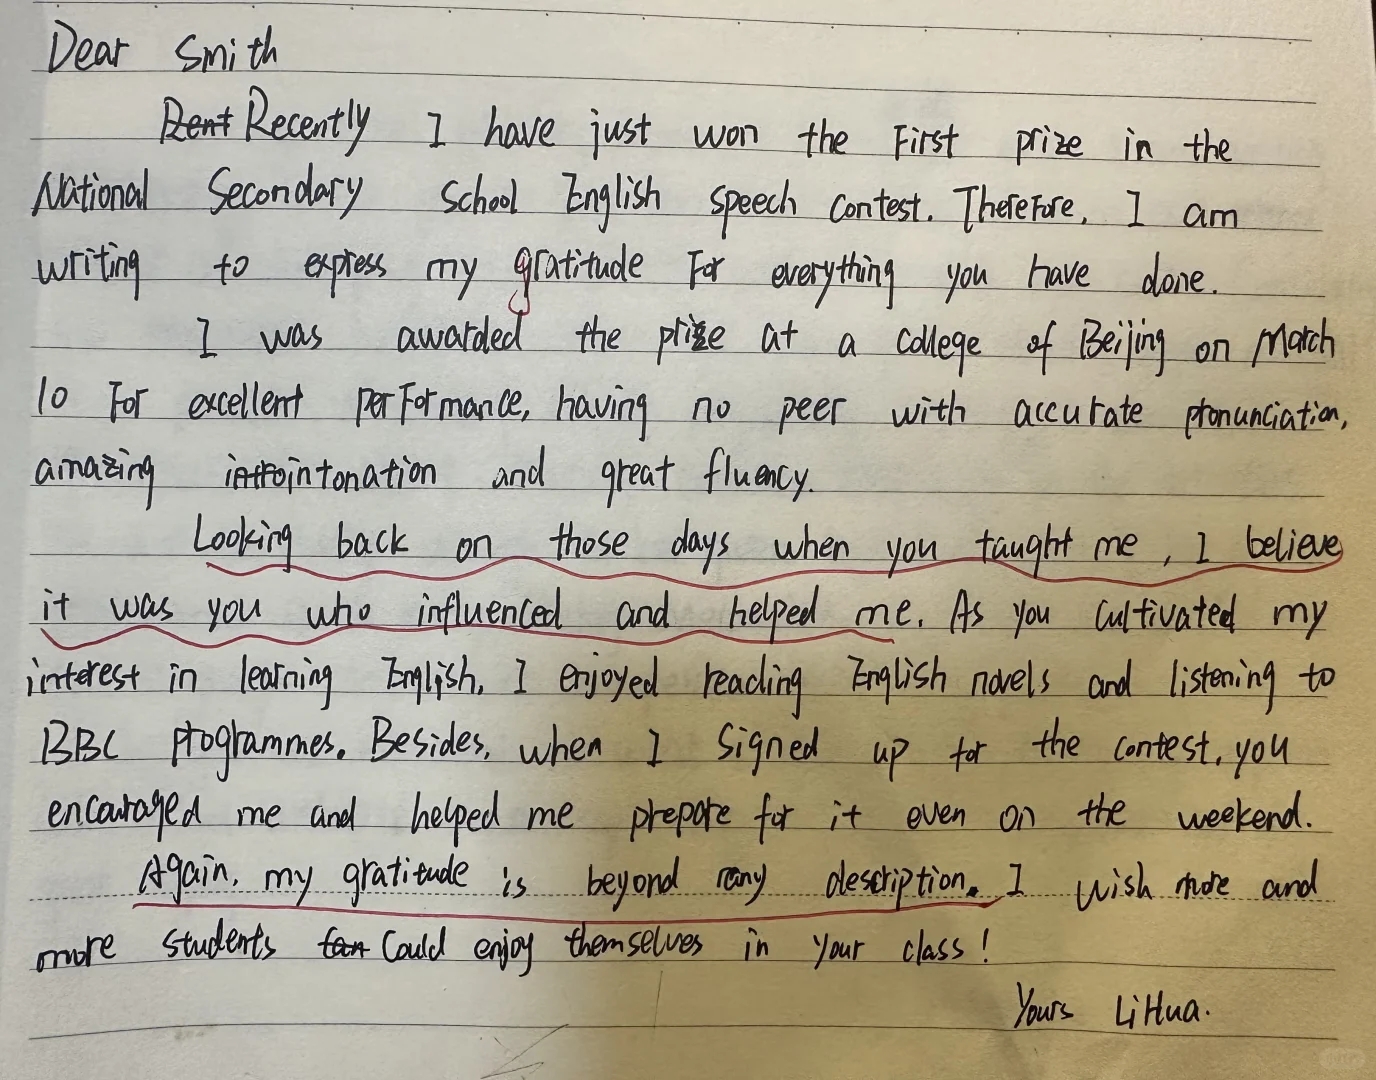 Dear Smith
Rent Recently I have just won the First prize in the
National Secondary School English speech contest. Therefore, I am
writing to express my gratitude For everything you have done.
I was awarded the prize at a college of Beijing on March
10 For excellent performance, having no peer with accurate pronunciation,
amazing intro intonation and great fluency.
Looking back on those days when you taught me, I believe
it was you who influenced and helped me. As you cultivated my
interest in learning English, I enjoyed reading English novels and listening to
BBC programmes. Besides, when I signed up for the contest, you
encouraged me and helped me prepare for it even on the weekend.
Again, my gratitude is beyond any description. I wish more and
more students could enjoy themselves in your class!
Yours LiHua.